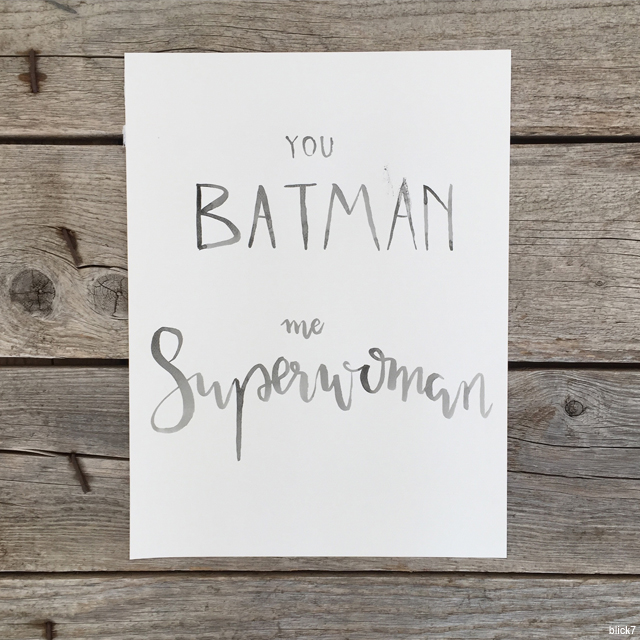 YOU
BATMAN
me
Superwoman
blick7